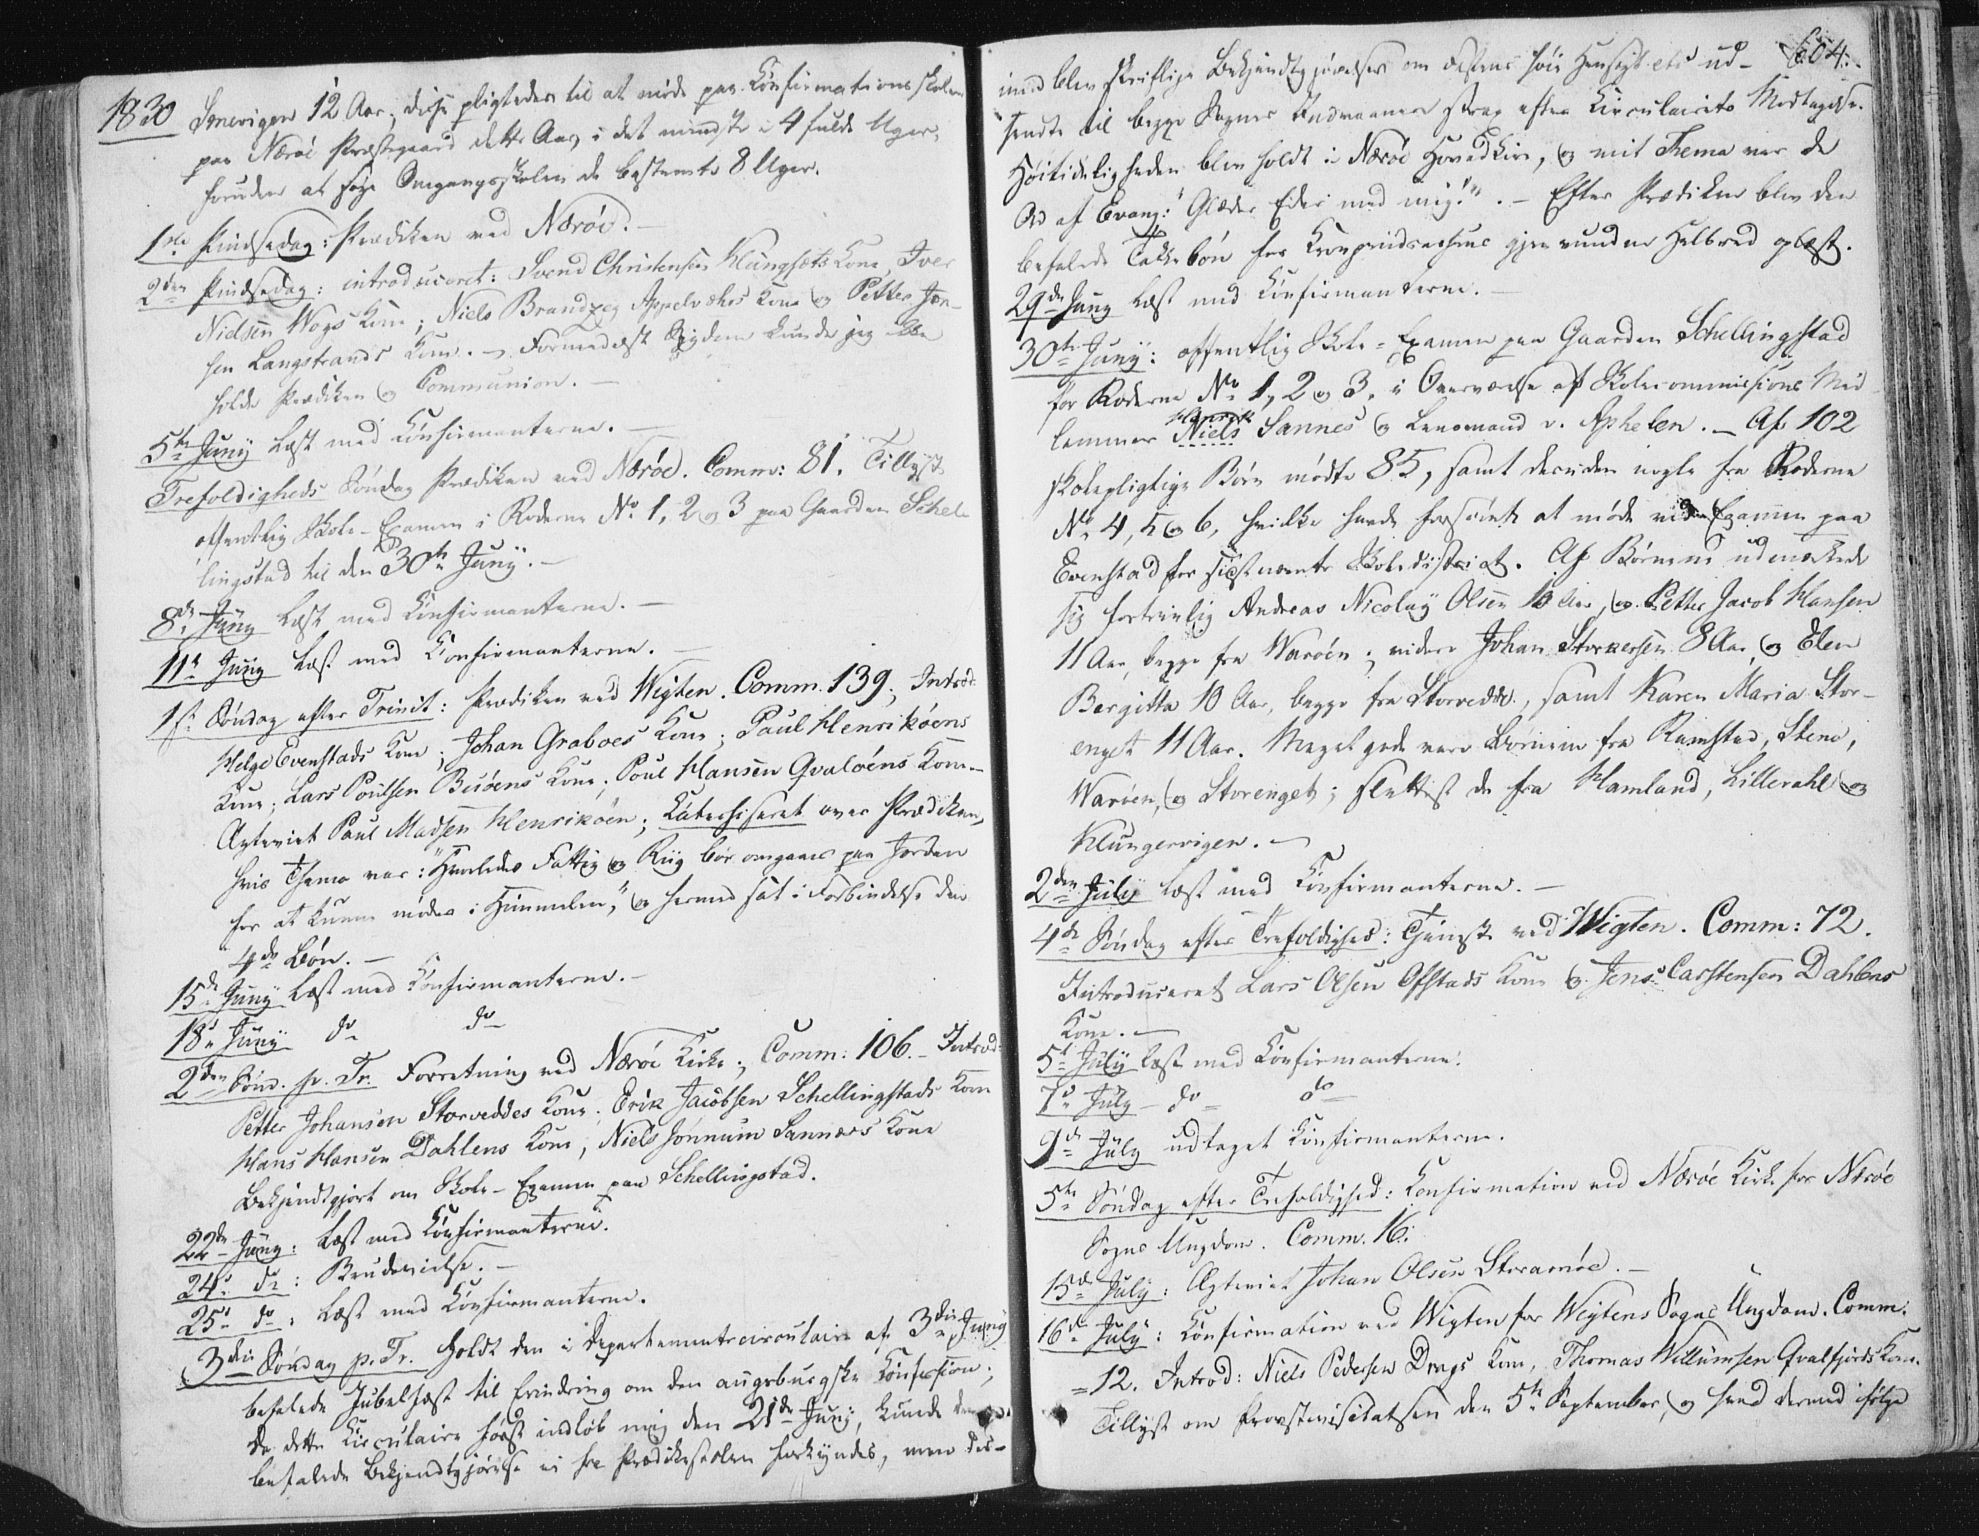 1830
Smevigen 12 Aar; disse pligtede til at møde paa Confirmationsskolen
paa Nærøe Præstegaard dette Aar, i det mindste i 4 fulde Uger,
foruden at søge Omgangsskolen de bestemte 8 Uger.
1ste Pindsedag: Prædiken ved Nærøe. –
2den Pindsedag: introduceret: Svend Christensen Klungsets Kone, Iver
Nielsen Wogs Kone; Niels Brandzeg Appelvehrs Kone og Petter Jen-
sen Langstrands Kone. – Formedelst Sygdom kunde jeg ikke
holde Prædiken og Communion. –
5te Juny læst med Confirmanterne. –
Trefoldigheds Søndag Prædiken ved Nærøe. Comm: 81. Tillyst
offentlig Skole-Examen i Roderne No 1, 2 og 3 paa Gaarden Schel-
lingstad til den 30te Juny. –
8de Juny læst med Confirmanterne. –
11te Juny læst med Confirmanterne. –
1ste Søndag efter Trinit: Prædiken ved Wigten. Comm. 139; Introd:
Helge Evenstads Kone; Johan Graboes Kone; Paul Henriköens
Kone; Lars Poulsen Buöens Kone; Poul Hansen Qvaloëns Kone. –
Ægteviet Paul Madsen Henriköen; Katechiseret over Prædiken,
hvis Thema var: "Hvorledes Fattig og Riig bør omgaaes paa Jorden
for at kunne mødes i Himmelen," og hermed sat i Forbindelse den
4de Bøn. –
15de Juny læst med Confirmanterne. –
18de Juny do do
2den Sønd. p. Tr. Forretning ved Nærøe Kirke; Comm: 106. – Introd:
Petter Johansen Storveddes Kone; Erik Jacobsen Schellingstads Kone
Hans Hansen Dahlens Kone; Niels Jönnum Sannæs Kone
Bekjendtgjort om Skole-Examen paa Schellingstad.
22de Juny: læst med Confirmanterne.
24de do: Brudevielse. –
25de do: læst med Confirmanterne.
3die Søndag p. Tr. Holdt den i Departementscirculaire af 3die Juny
befalede Jubelfæst til Erindring om den augsburgske Confession;
da dette Circulaire først indløb mig den 21de Juny, kunde den
befalede Bekjendtgjørelse ei fra Prædikestolen forkyndes, men des-
604.
imod blev skriftlige Bekjendtgjørelser om Festens høie Hensigt etc ud-
sendte til begge Sognes Andvaanere strax efter Circulairets Modtagelse.
Høitideligheden blev holdt i Nærøe Hovedkirke, og mit Thema var de
Ord af Evang: "Glæder Eder med mig!". – Efter Prædiken blev den
befalede Takkebøn for Kronprindsessens gjenvundne Helbred oplæst.
29de Juny læst med Confirmanterne. –
30te Juny: offentlig Skole-Examen paa Gaarden Schellingstad
for Roderne No 1, 2 og 3, i Overværelse af Skolecommissions Med-
lemmer Henrik Niels Sannes og Lensmand v. Aphelen. – Af 102
skolepligtige Børn mødte 85, samt desuden nogle fra Roderne
No 4, 5 og 6, hvilke havde forsømt at møde ved Examen paa
Evenstad for sidstnævnte Skoledistrict. Af Børnene udmærkede
sig fortrinlig Andreas Nicolay Olsen 10 Aar, og Petter Jacob Hansen
11 Aar, begge fra Waröen; videre Johan Storversen 8 Aar, og Elen
Bergitta 10 Aar, begge fra Storvedde, samt Karen Maria Stor-
enget 11 Aar. Meget gode vare Børnene fra Ramstad, Stene,
Waröen, og Storenget; slettest de fra Hamland, Lillevahl og
Klungervigen. –
2den July læst med Confirmanterne. –
4de Søndag efter Trefoldighed: Tjeneste ved Wigten. Comm: 72.
Introduceret Lars Olsen Ofstads Kone og Jens Carstensen Dahlens
Kone. –
5te July læst med Confirmanterne.
7de July – do – do –
9de July udtaget Confirmanterne.
5te Søndag efter Trefoldighed: Confirmation ved Nærøe Kirke for Nærøe
Sogns Ungdom. Comm. 16.
15de July: Ægteviet Johan Olsen Storamöe. –
16de July: Confirmation ved Wigten for Wigtens Sogns Ungdom. Comm:
=12. Introd: Niels Pedersen Drags Kone, Thomas Willumsen Qvalfjords Kone.
Tillyst om Provstevisitatsen den 5te September, og hvad dermed ifølge